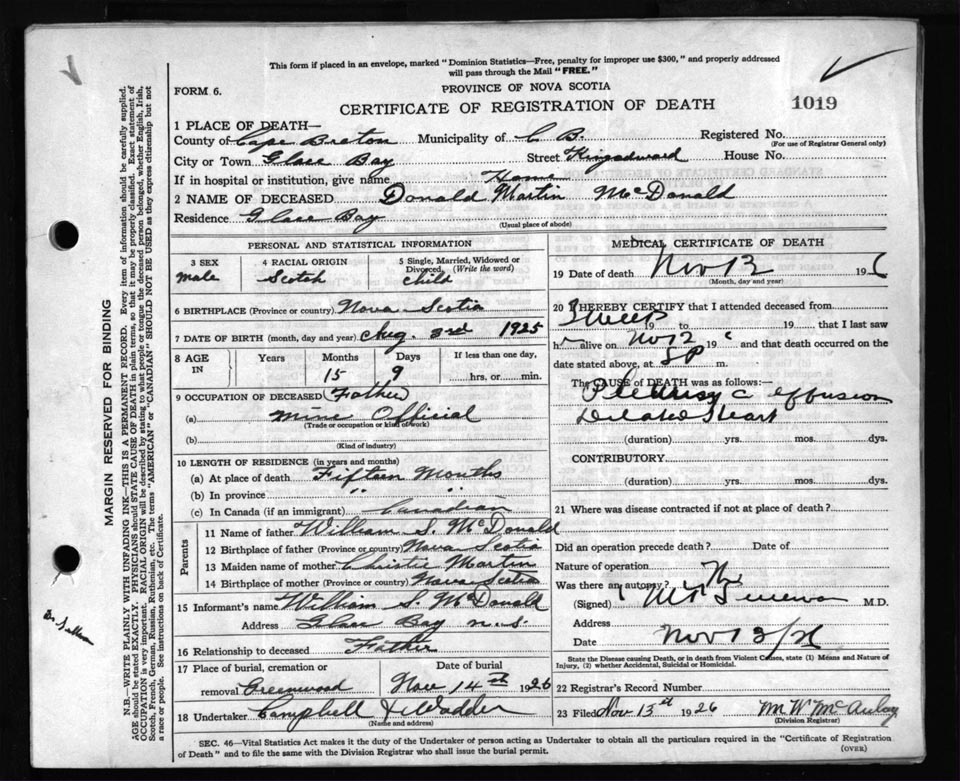 This form if placed in an envelope, marked "Dominion Statistics—Free, penalty for improper use $300," and properly addressed
will pass through the Mail "FREE."
FORM 6.
PROVINCE OF NOVA SCOTIA
CERTIFICATE OF REGISTRATION OF DEATH
1019
1 PLACE OF DEATH—
County of Cape Breton Municipality of C B. Registered No.
(For use of Registrar General only)
City or Town Glace Bay Street Kingedward House No.
If in hospital or institution, give name Home
2 NAME OF DECEASED Donald Martin McDonald
Residence Glace Bay
(Usual place of abode)
PERSONAL AND STATISTICAL INFORMATION
3 SEX
male
4 RACIAL ORIGIN
Scotch
5 Single, Married, Widowed or
Divorced, (Write the word)
child
6 BIRTHPLACE (Province or country) Nova Scotia
7 DATE OF BIRTH (month, day and year) Aug. 3rd 1925
8 AGE
IN
Years Months Days If less than one day,
15 9 hrs. or min.
9 OCCUPATION OF DECEASED (Father)
(a) mine Official
(Trade or occupation or kind of work)
(b)
(Kind of industry)
10 LENGTH OF RESIDENCE (in years and months)
(a) At place of death Fifteen Months
(b) In province " "
(c) In Canada (if an immigrant) Canadian
Parents
11 Name of father William S. McDonald
12 Birthplace of father (Province or country) Nova Scotia
13 Maiden name of mother Christie Martin
14 Birthplace of mother (Province or country) Nova Scotia
15 Informant's name William S. McDonald
Address Glace Bay n.s.
16 Relationship to deceased Father
17 Place of burial, cremation or
removal Greenwood
Date of burial
Nov 14th 1926
18 Undertaker Campbell &
(Name and address)
MEDICAL CERTIFICATE OF DEATH
19 Date of death Nov 12 1926
(Month, day and year)
20 I HEREBY CERTIFY that I attended deceased from
3 weeks 19 to 19 that I last saw
h alive on Nov 12 19 and that death occurred on the
date stated above, at 5 P m.
The CAUSE of DEATH was as follows:—
Pleurisy c effusion
Dilated Heart
(duration) yrs. mos. dys.
CONTRIBUTORY
(duration) yrs. mos. dys.
21 Where was disease contracted if not at place of death?
Did an operation precede death? Date of
Nature of operation
Was there an autopsy? No
(Signed) M.D.
Address
Date Nov 13/26
State the Disease causing Death, or in death from Violent Causes, state (1) Means and Nature of
Injury, (2) whether Accidental, Suicidal or Homicidal.
22 Registrar's Record Number
23 Filed Nov 13th 1926 M. W. McAulay
(Division Registrar)
SEC. 46—Vital Statistics Act makes it the duty of the Undertaker or person acting as Undertaker to obtain all the particulars required in the "Certificate of Registration
of Death" and to file the same with the Division Registrar who shall issue the burial permit.
(OVER)
MARGIN RESERVED FOR BINDING
N.B.—WRITE PLAINLY WITH UNFADING INK—THIS IS A PERMANENT RECORD. Every item of information should be carefully supplied.
AGE should be stated EXACTLY. PHYSICIANS should STATE CAUSE OF DEATH in plain terms, so that it may be properly classified. Exact statement of
OCCUPATION is very important. RACIAL ORIGIN will be described by stating to what people or tongue the deceased person belonged, whether English, Irish,
Scotch, French, German, Russian, Ruthenian, etc. The terms "AMERICAN" or "CANADIAN" SHOULD NOT BE USED as they express citizenship but not
a race or people. See instructions on back of Certificate.